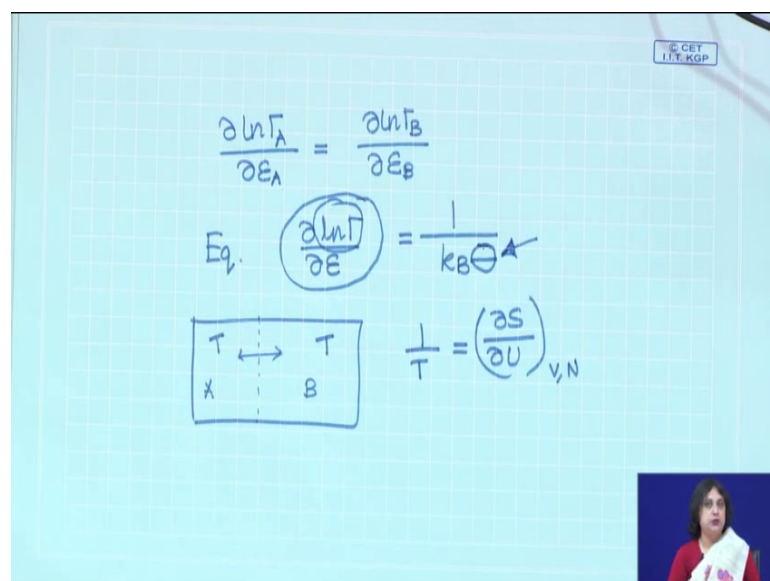 © CET
I.I.T. KGP
∂lnΓA/∂εA = ∂lnΓB/∂εB
Eq. ∂lnΓ/∂ε = 1/kBΘ
T ↔ T
A B
1/T = (∂S/∂U)V,N